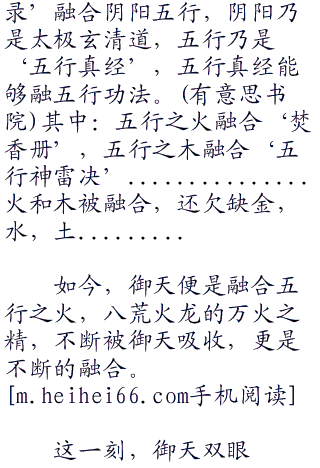 录’融合阴阳五行，阴阳乃
是太极玄清道，五行乃是
‘五行真经’，五行真经能
够融五行功法。(有意思书
院)其中：五行之火融合‘焚
香册’，五行之木融合‘五
行神雷决’...............
火和木被融合，还欠缺金，
水，土.........
如今，御天便是融合五
行之火，八荒火龙的万火之
精，不断被御天吸收，更是
不断的融合。
[m.heihei66.com手机阅读]
这一刻，御天双眼